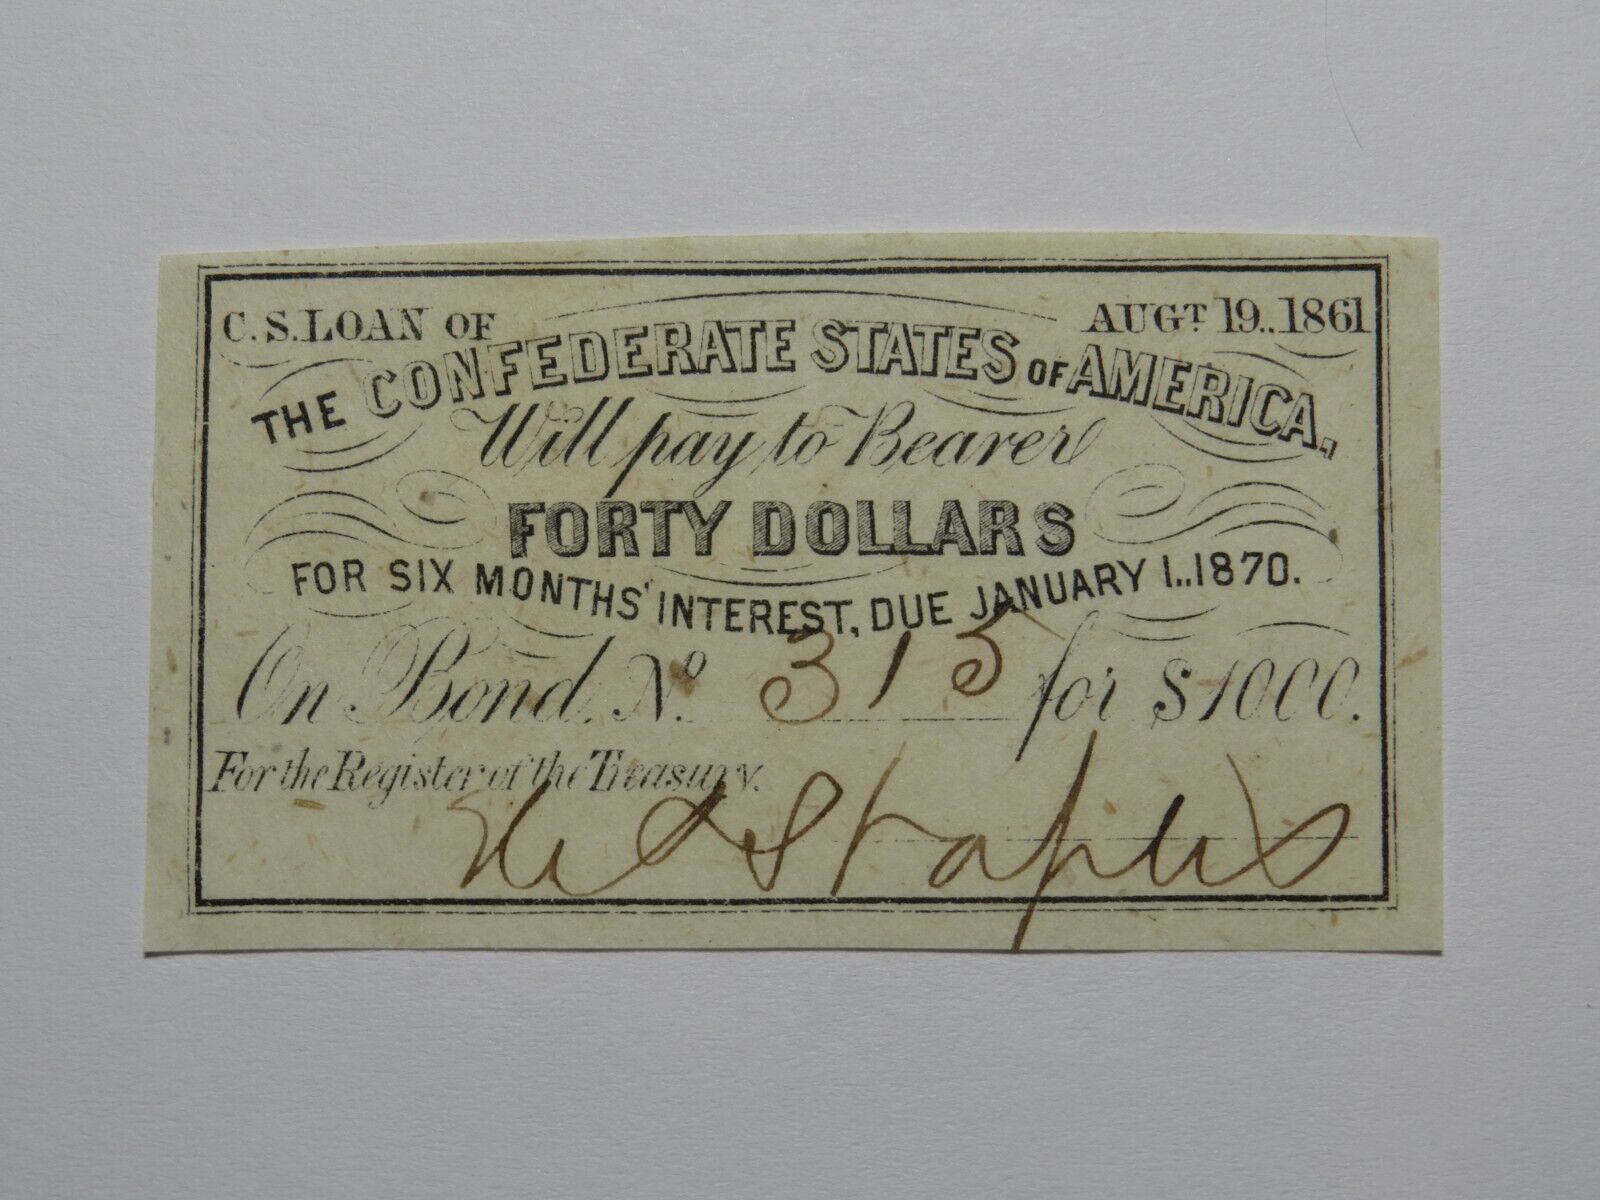 C. S. LOAN OF AUGT 19..1861
THE CONFEDERATE STATES OF AMERICA.,
Will pay to Bearer
FORTY DOLLARS
FOR SIX MONTHS' INTEREST, DUE JANUARY 1..1870.
On Bond. No. 315 for $1000.
For the Register of the Treasury.
Staples